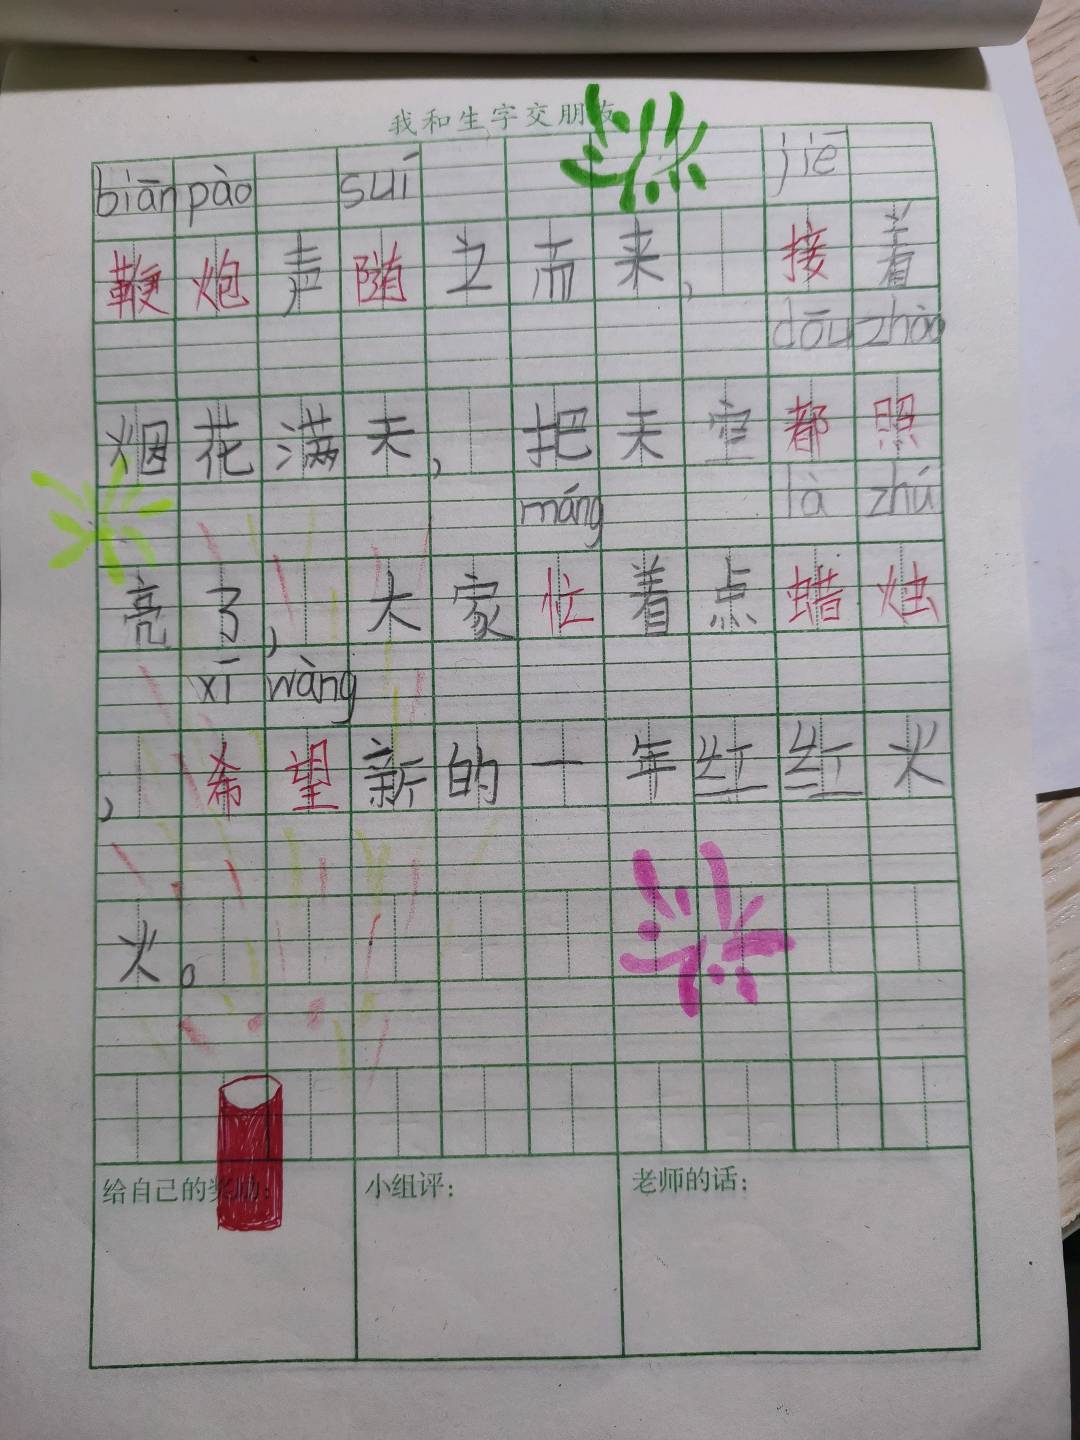 我和生字交朋友
biān pào suí jiē
鞭炮声随之而来，接着
dōu zhào
烟花满天，把天空都照
máng là zhú
亮了，大家忙着点蜡烛
xī wàng
，希望新的一年红红火
火。
给自己的奖励： 小组评： 老师的话：